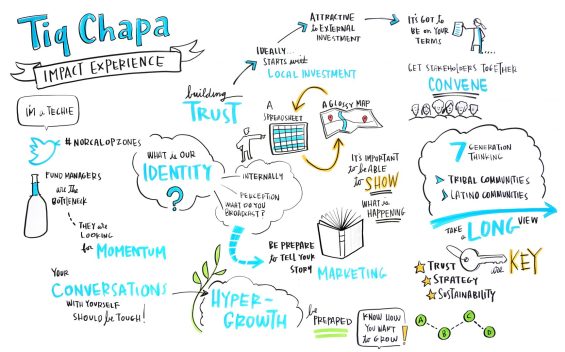 Tiq Chapa
IMPACT EXPERIENCE
I'M a TECHIE
#NORCALOPZONES
FUND MANAGERS
are the
BOTTLENECK
THEY ARE
LOOKING
for MOMENTUM
YOUR
CONVERSATIONS
WITH YOURSELF
SHOULD BE TOUGH!
WHAT is OUR
IDENTITY
?
INTERNALLY
PERCEPTION
WHAT DO YOU
BROADCAST?
building
TRUST
IDEALLY...
STARTS with
LOCAL INVESTMENT
ATTRACTIVE
to EXTERNAL
INVESTMENT
IT'S GOT to
BE on YOUR
TERMS
A
SPREADSHEET
A GLOSSY MAP
IT'S IMPORTANT
to be ABLE
to SHOW
WHAT is
HAPPENING
BE PREPARE
to TELL YOUR
STORY
MARKETING
HYPER-
GROWTH
be
PREPARED
KNOW HOW
YOU WANT
to GROW!
GET STAKEHOLDERS TOGETHER
CONVENE
7 GENERATION
THINKING
TRIBAL COMMUNITIES
LATINO COMMUNITIES
TAKE a LONG VIEW
TRUST
STRATEGY
SUSTAINABILITY
are KEY
A
B
C
D